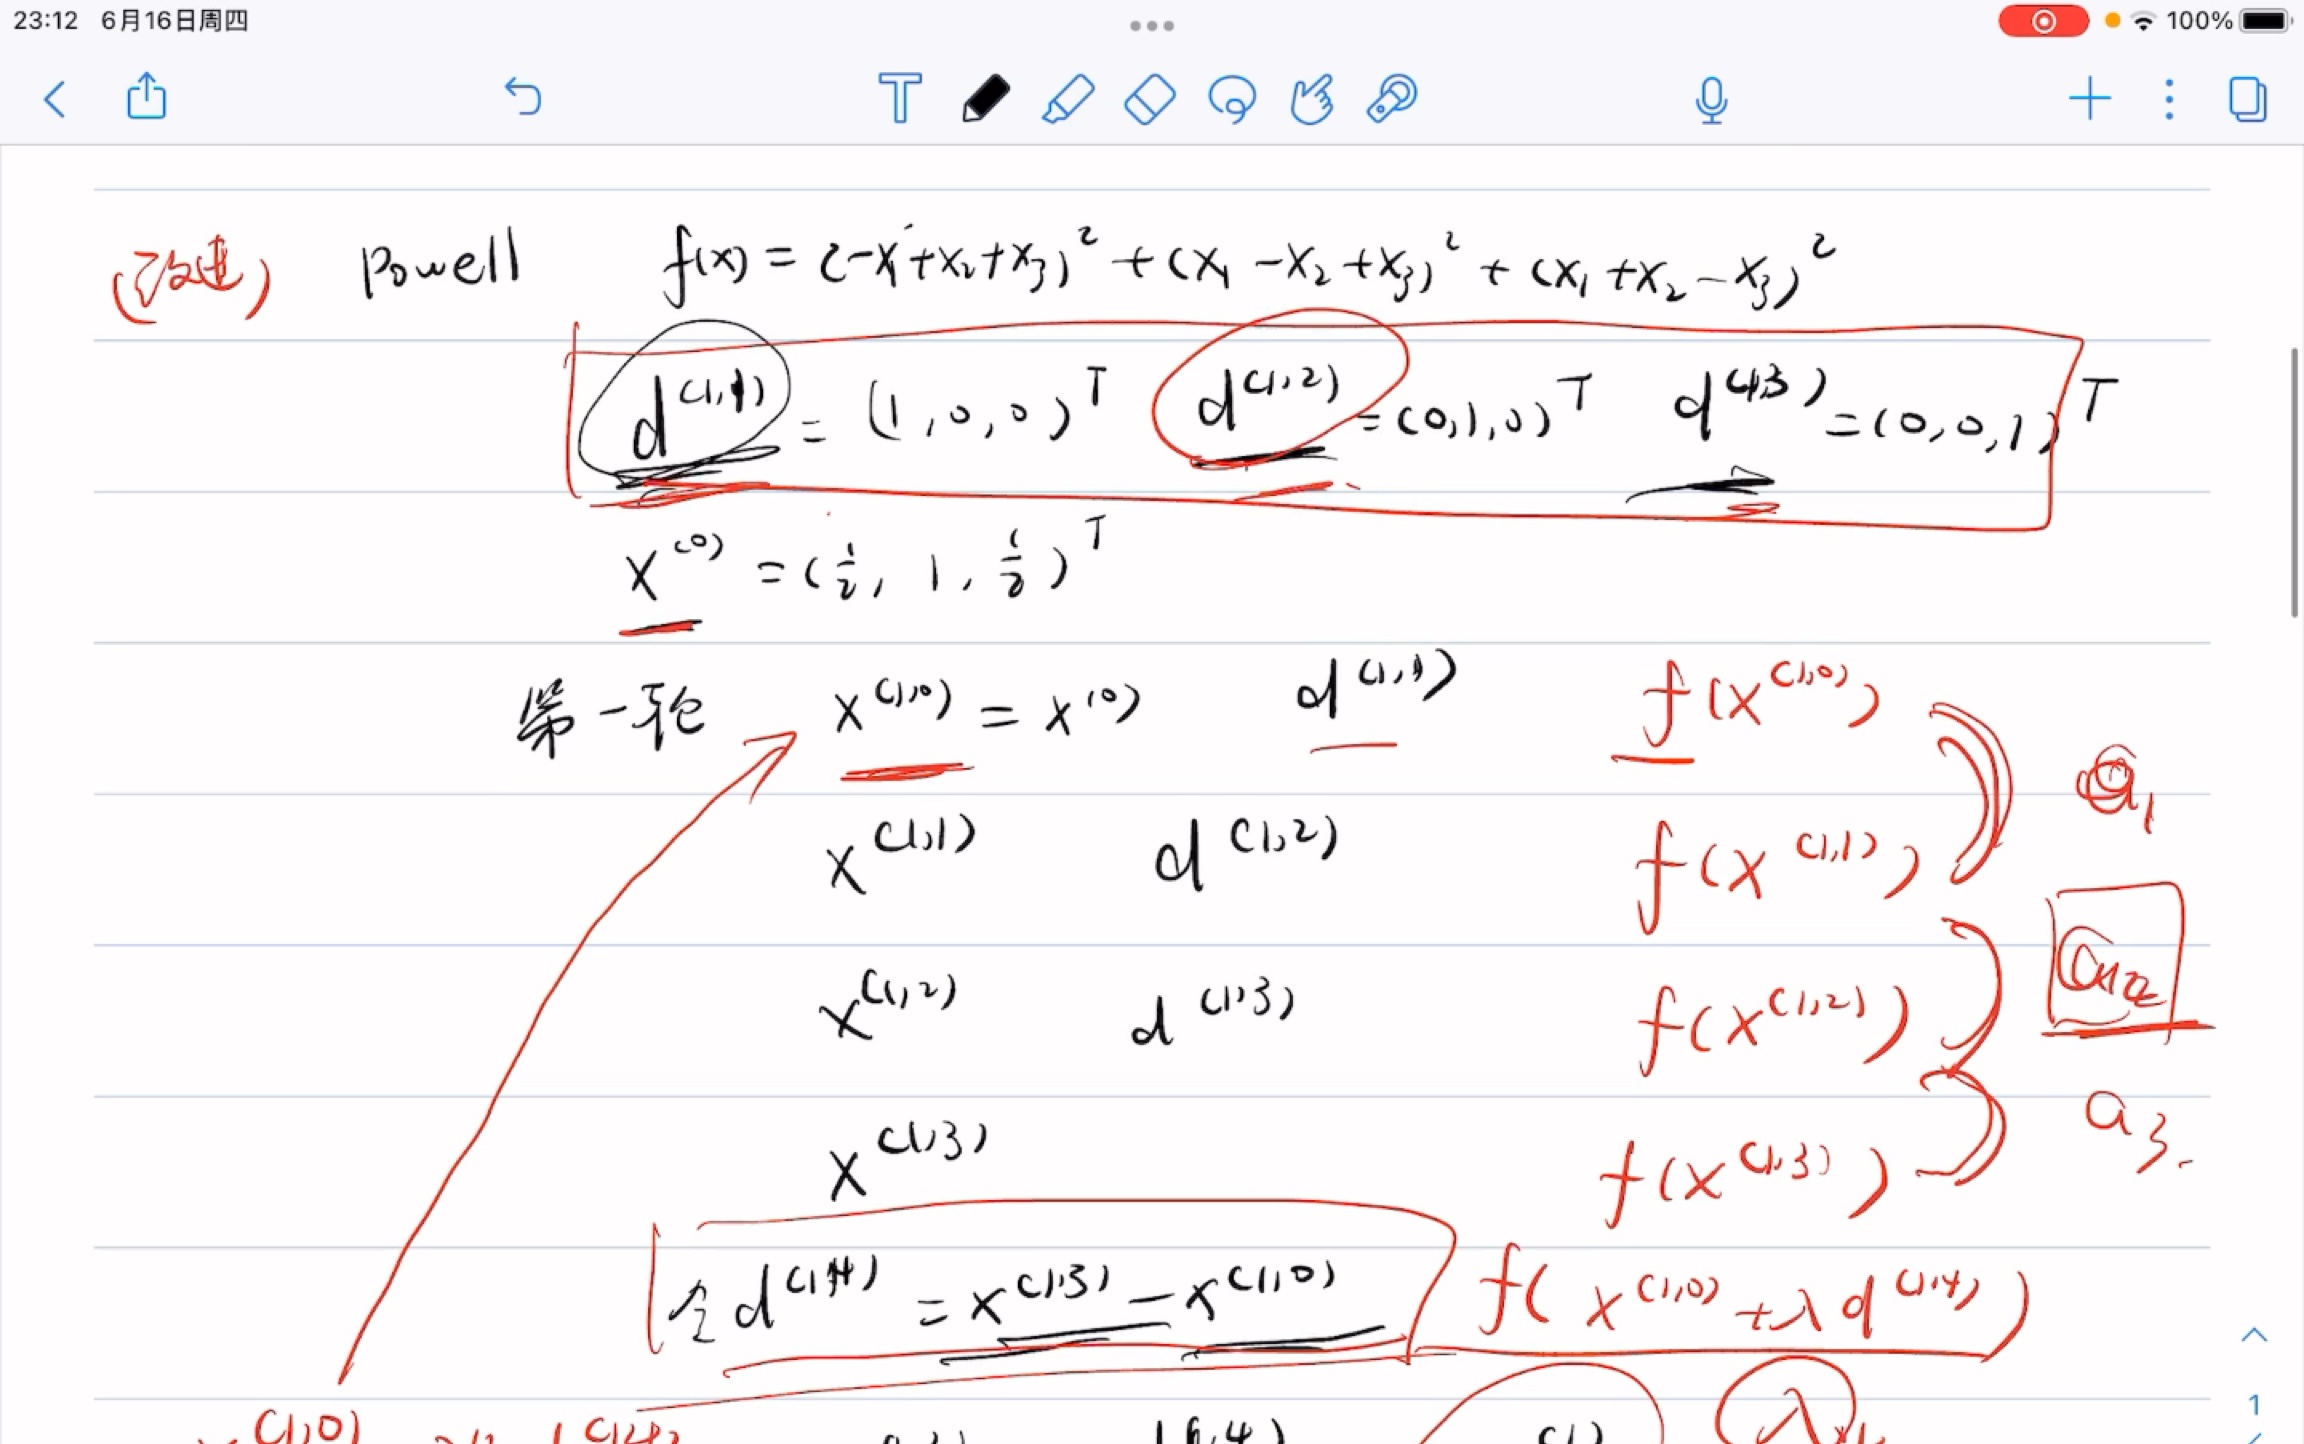 23:12 6月16日周四 100%
(改进) Powell f(x) = (-x₁+x₂+x₃)² + (x₁-x₂+x₃)² + (x₁+x₂-x₃)²
d^(1,1) = (1,0,0)^T d^(1,2) = (0,1,0)^T d^(1,3) = (0,0,1)^T
x^(0) = (1/2, 1, 1/2)^T
第一轮 x^(1,0) = x^(0) d^(1,1) f(x^(1,0))
a₁
x^(1,1) d^(1,2) f(x^(1,1))
x^(1,2) d^(1,3) f(x^(1,2))
a₃.
x^(1,3) f(x^(1,3))
令d^(1,4) = x^(1,3) - x^(1,0) f(x^(1,0) + λd^(1,4))
1